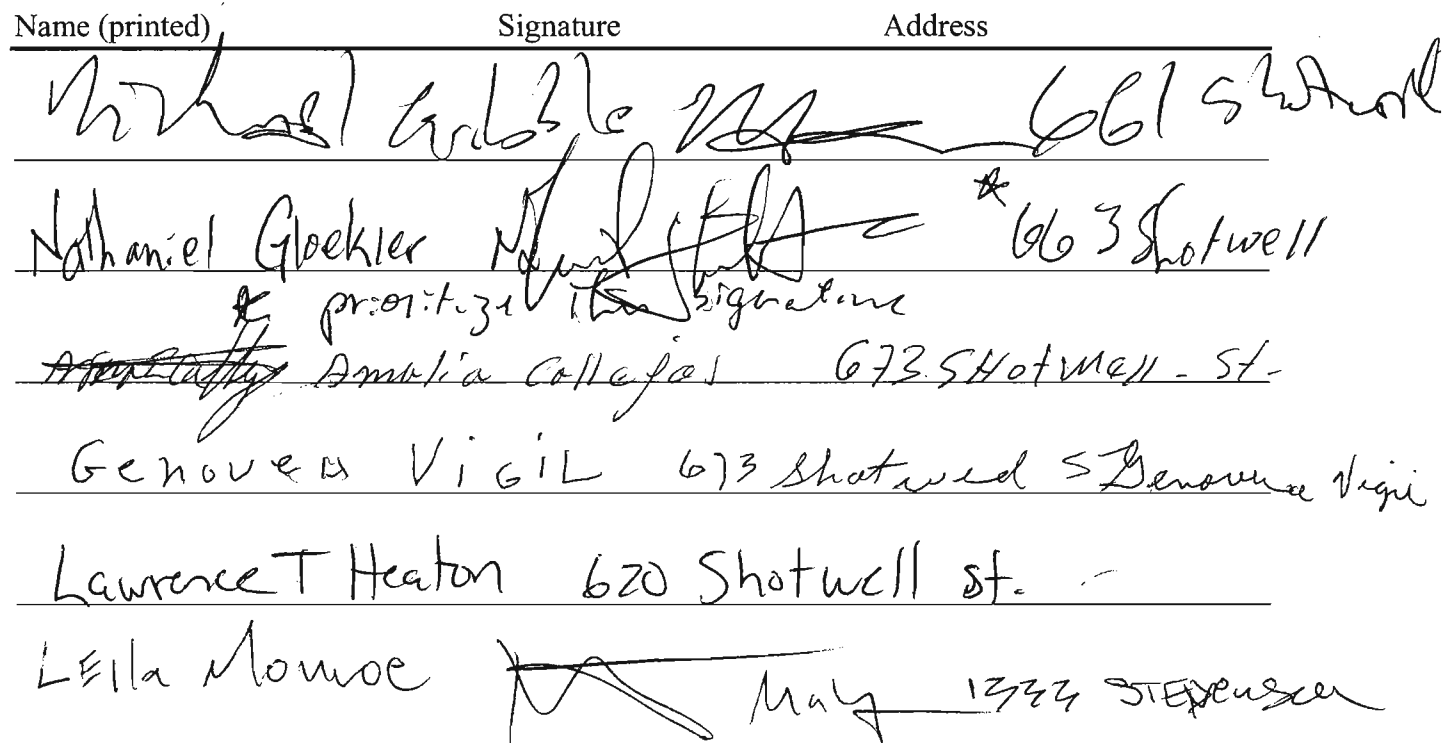 Name (printed) Signature Address
Michael Gribble 661 Shotwell
Nathaniel Gloekler * 663 Shotwell
* prioritize this signature
Amalia Callejas 673 SHotwell - St-
Genoveva ViGiL 673 Shotwell S Genoveva Vigil
Lawrence T Heaton 620 Shotwell st.
LEIla Monroe May 1333 STEVENSON